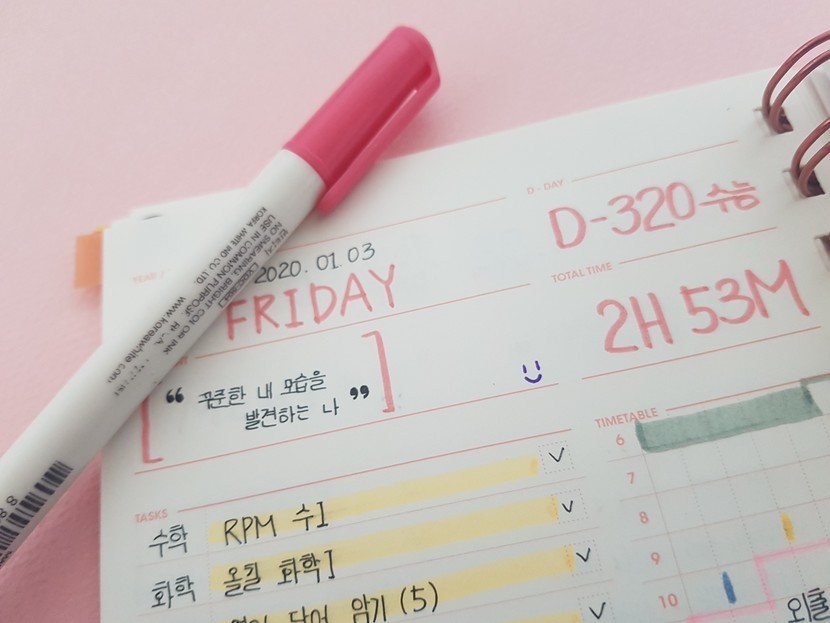 KOREA WHITE IND CO LTD.
USE IN COMMON PURPOSE
NO SMEARING BRIGHT COLOR INK
www.koreawhite.com
D - DAY
D-320 수능
YEAR /
2020. 01. 03
FRIDAY
TOTAL TIME
2H 53M
“ 꾸준한 내 모습을
발견하는 나 ”
TASKS
수학 RPM 수I
화학 올킬 화학I
단어 암기 (5)
TIMETABLE
6
7
8
9
10
외출